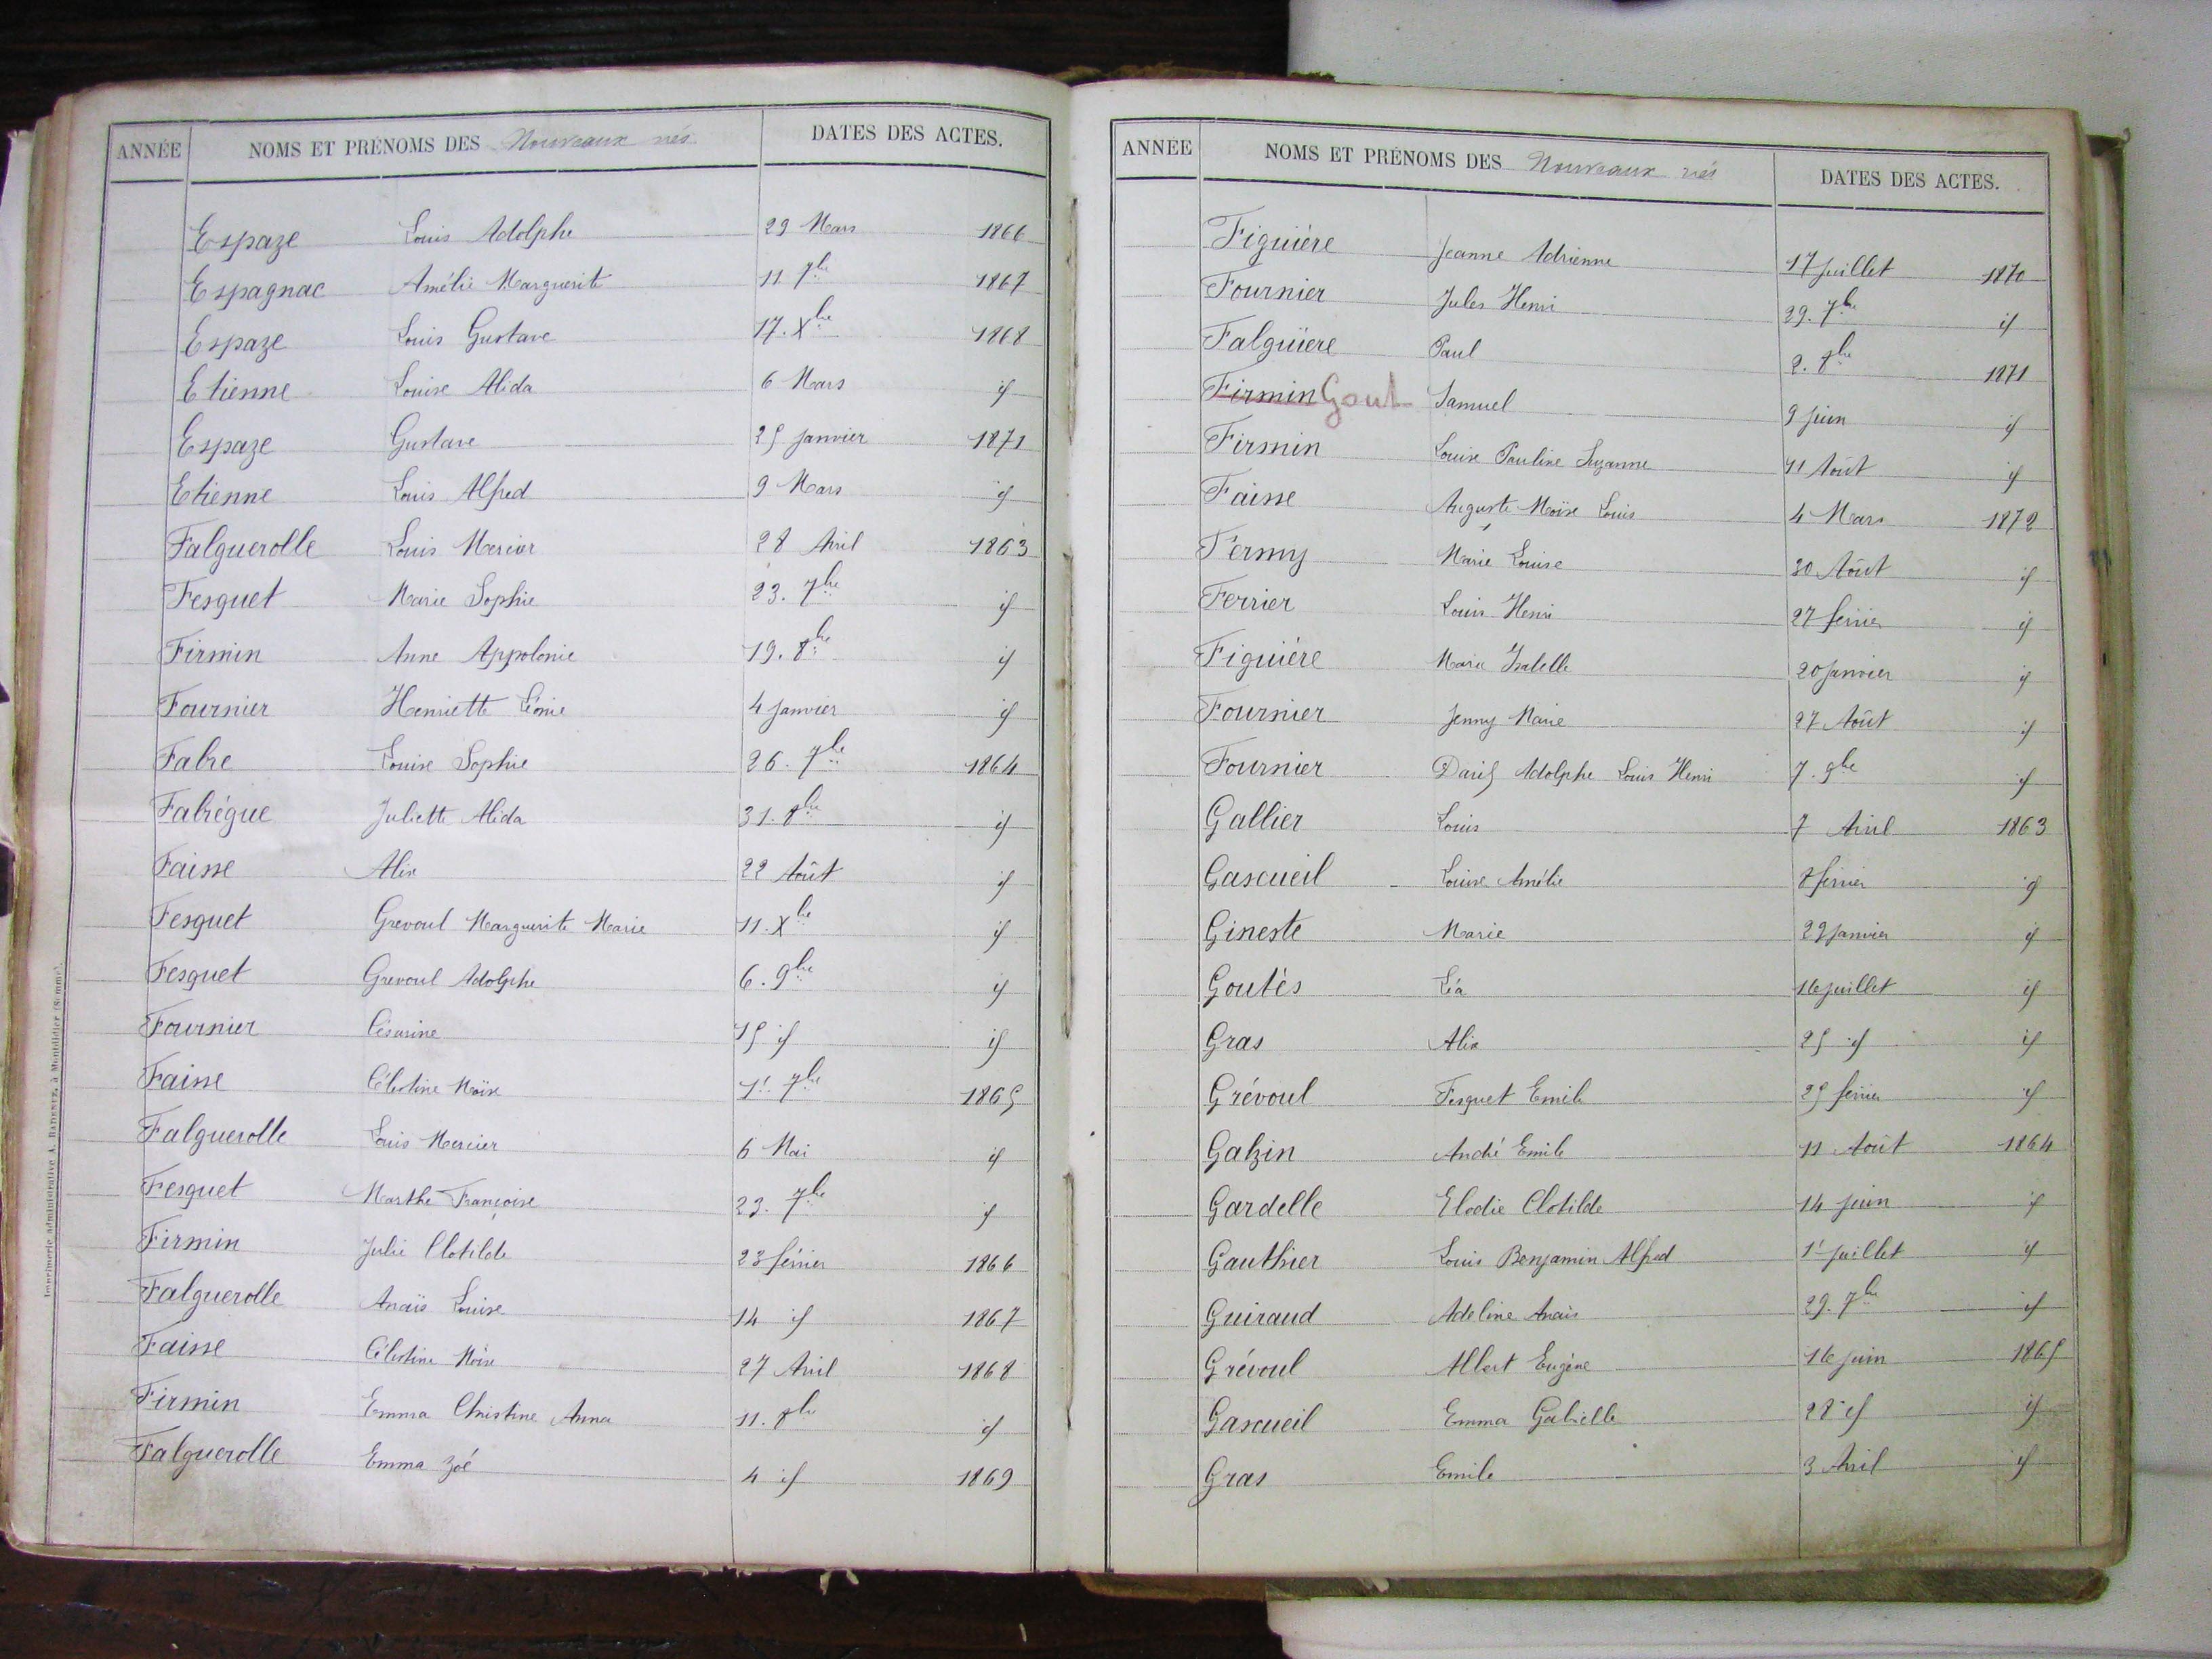 ANNÉE NOMS ET PRÉNOMS DES Nouveaux nés DATES DES ACTES.
Espaze Louis Adolphe 29 Mars 1866
Espagnac Amélie Marguerite 11 7bre 1867
Espaze Louis Gustave 17. Xbre 1868
Etienne Louise Alida 6 Mars id
Espaze Gustave 25 Janvier 1871
Etienne Louis Alfred 9 Mars id
Falguerolle Louis Mercier 28 Avril 1863
Fesquet Marie Sophie 23. 7bre id
Firmin Anne Appolonie 19. 8bre id
Fournier Henriette Léonie 4 Janvier id
Fabre Louise Sophie 26. 7bre 1864
Fabrègue Juliette Alida 31. 8bre id
Faisse Alix 22 Août id
Fesquet Grevoul Marguerite Marie 11. Xbre id
Fesquet Grevoul Adolphe 6. 9bre id
Fournier Césarine 15 id id
Faisse Célestine Moïse 1er 7bre 1865
Falguerolle Louis Mercier 6 Mai id
Fesquet Marthe Françoise 23. 7bre id
Firmin Julie Clotilde 23 février 1866
Falguerolle Anaïs Louise 14 id 1867
Faisse Célestine Moïse 27 Avril 1868
Firmin Emma Christine Anna 11. 8bre id
Falguerolle Emma Zoé 4 id 1869
Imprimerie administrative A. à Montdidier (Somme).
ANNÉE NOMS ET PRÉNOMS DES Nouveaux nés DATES DES ACTES.
Figuière Jeanne Adrienne 17 Juillet 1870
Fournier Jules Henri 29. 7bre id
Falguière Paul 2. 8bre 1871
Firmin Gout Samuel 9 Juin id
Firmin Louise Pauline Suzanne 11 Août id
Faisse Auguste Moïse Louis 4 Mars 1872
Fermy Marie Louise 30 Août id
Ferrier Louis Henri 27 février id
Figuière Marie Isabelle 20 Janvier id
Fournier Jenny Marie 27 Août id
Fournier David Adolphe Louis Henri 7. 9bre id
Gallier Louis 7 Avril 1863
Gascueil Louise Amélie 8 février id
Gineste Marie 22 Janvier id
Goutès Léa 16 Juillet id
Gras Alix 25 id id
Grévoul Fesquet Emile 25 février id
Galzin André Emile 11 Août 1864
Gardelle Elodie Clotilde 14 Juin id
Gauthier Louis Benjamin Alfred 1er Juillet id
Guiraud Adeline Anaïs 29. 7bre id
Grévoul Albert Eugène 16 Juin 1865
Gascueil Emma Gabrielle 28 id id
Gras Emile 3 Avril id